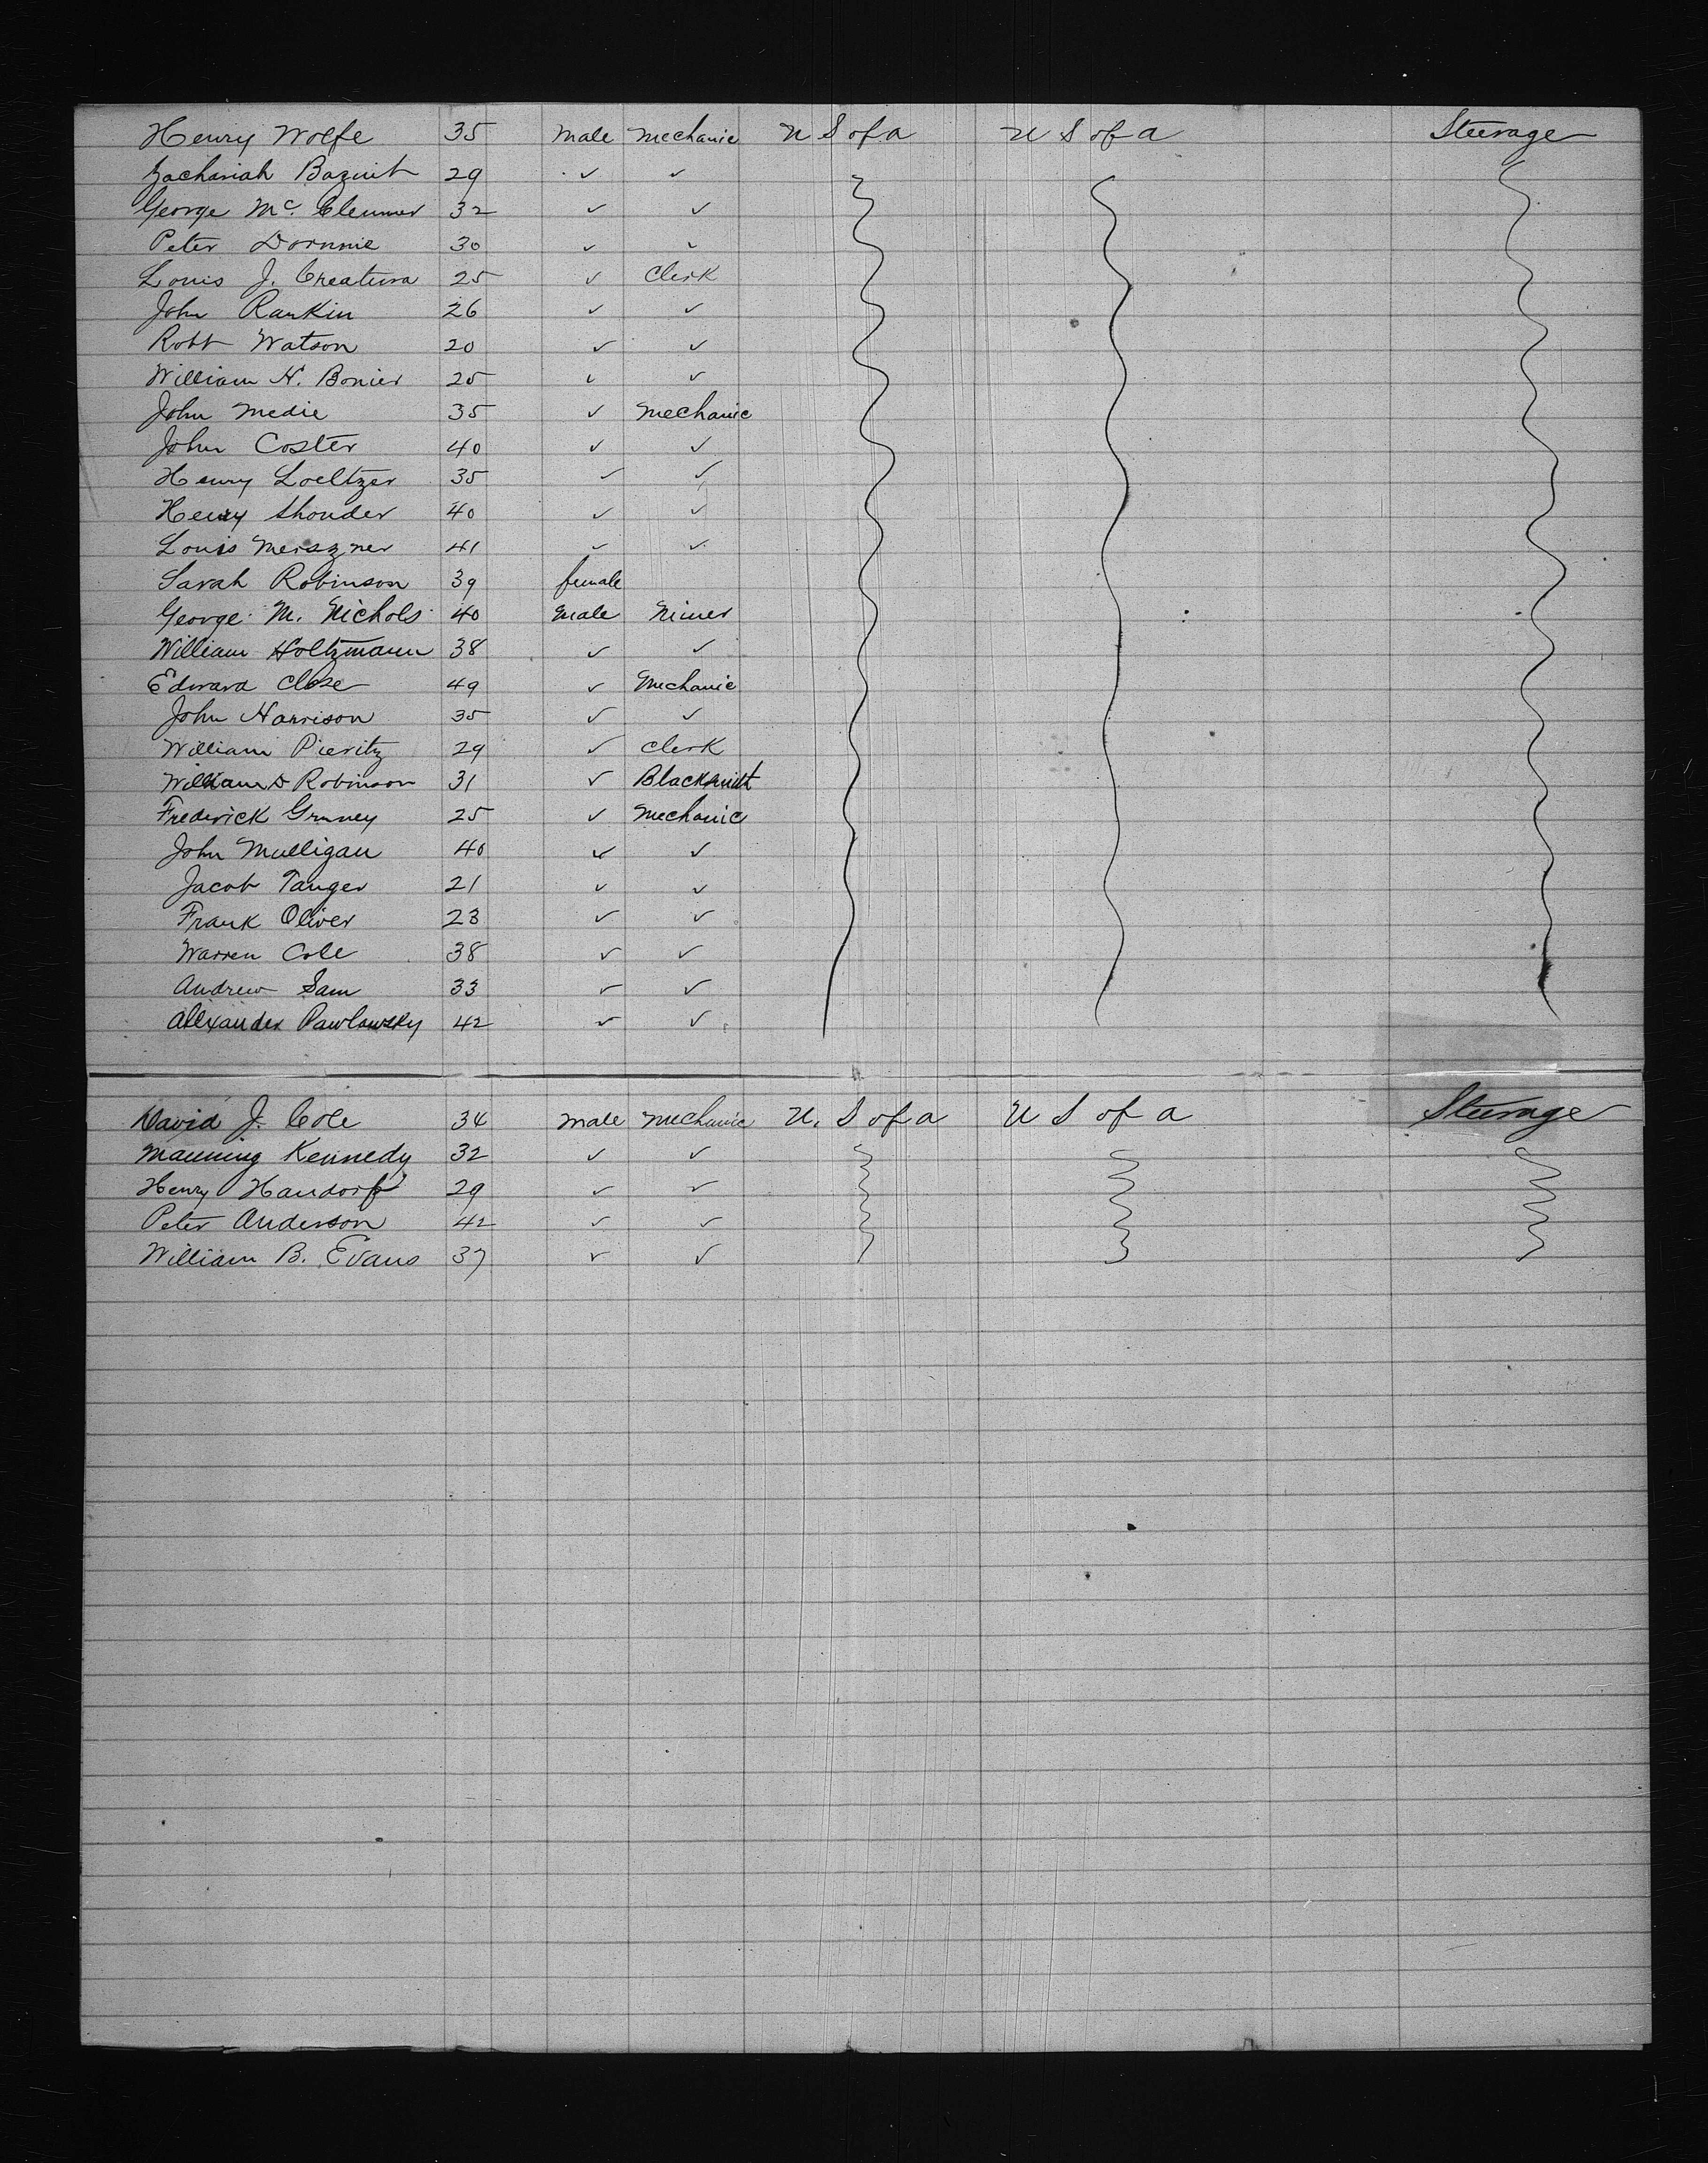 Henry Wolfe 35 male mechanic U S of a U S of a Steerage
Zachariah 29 ✓ ✓
George Mc. Clemmer 32 ✓ ✓
Peter 30 ✓ ✓
Louis J. Creatura 25 ✓ Clerk
John Rankin 26 ✓ ✓
Robt Watson 20 ✓ ✓
William H. Bonier 25 ✓ ✓
John Medie 35 ✓ Mechanic
John Coster 40 ✓ ✓
Henry Loeltzer 35 ✓ ✓
Henry Shouder 40 ✓ ✓
Louis Meiszner 41 ✓ ✓
Sarah Robinson 39 female
George M. Nichols 40 male
William Holtzmann 38 ✓ ✓
Edward Close 49 ✓ Mechanic
John Harrison 35 ✓ ✓
William Pieritz 29 ✓ Clerk
William D Robinson 31 ✓
Frederick 25 ✓ Mechanic
John Mulligan 40 ✓ ✓
Jacob Tanger 21 ✓ ✓
Frank Oliver 23 ✓ ✓
Warren Cole 38 ✓ ✓
Andrew Sam 33 ✓ ✓
Alexander Pawlowsky 42 ✓ ✓
David J. Cole 34 male mechanic U. S of a U S of a Steerage
Manning Kennedy 32 ✓ ✓
Henry Handorf 29 ✓ ✓
Peter Anderson 42 ✓ ✓
William B. Evans 37 ✓ ✓